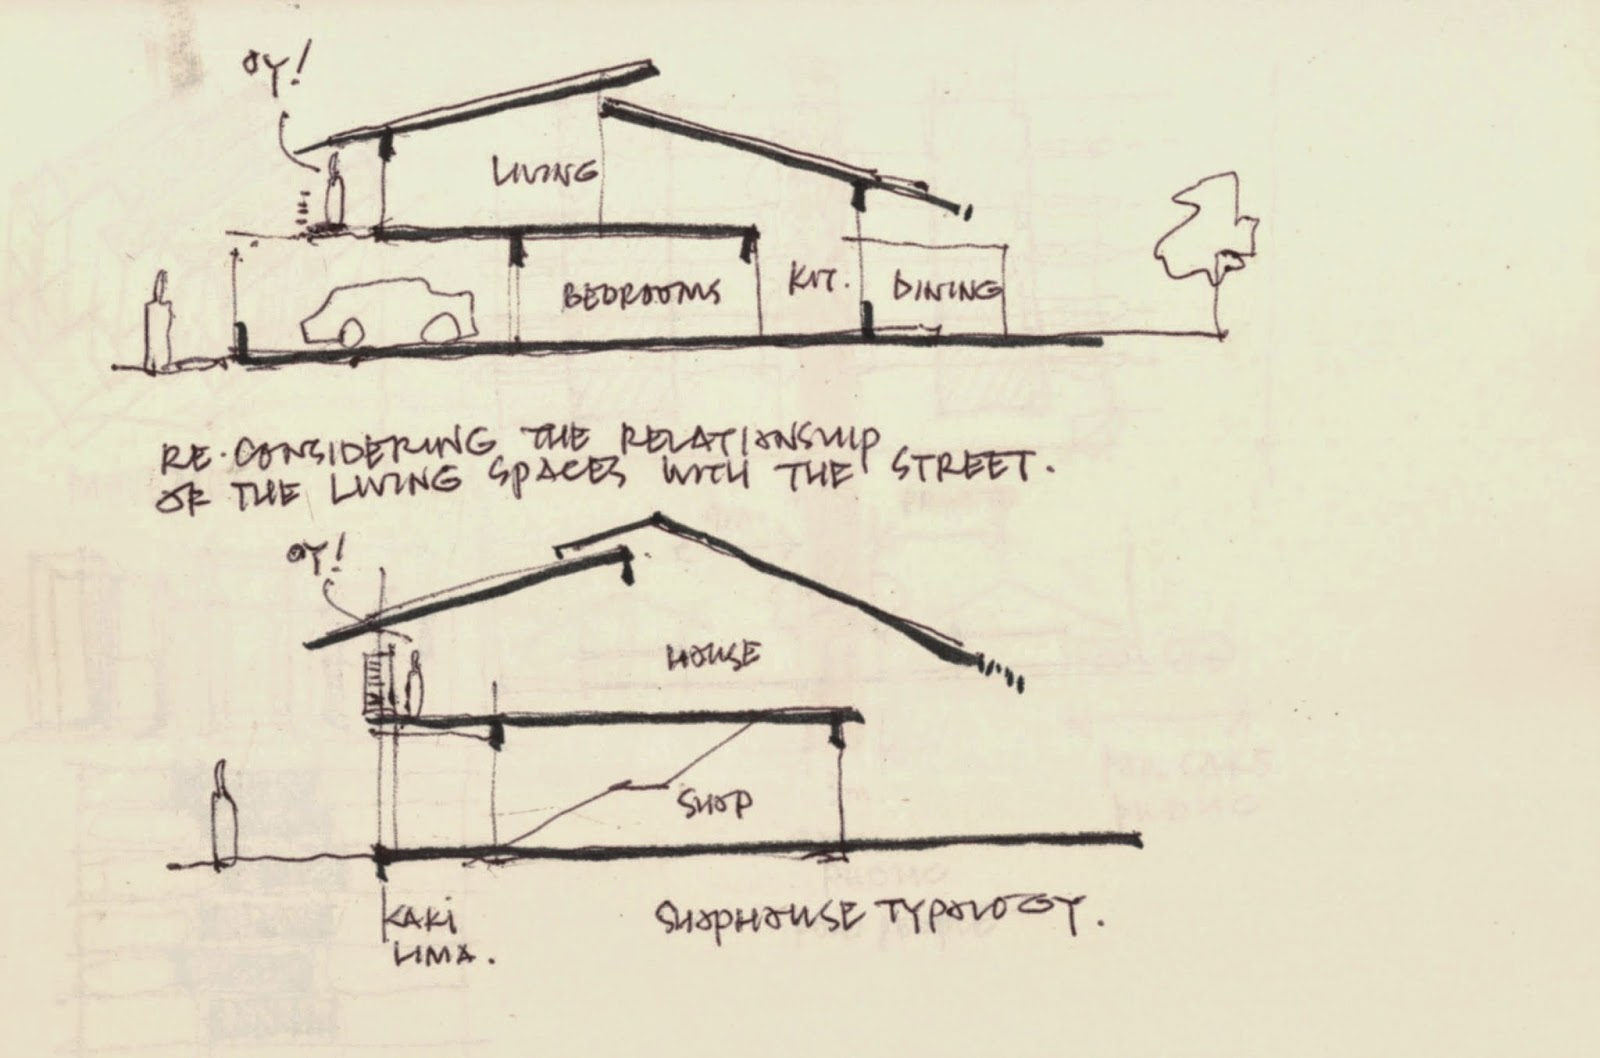 OY!
LIVING
BEDROOMS
KIT.
DINING
RE-CONSIDERING THE RELATIONSHIP
OF THE LIVING SPACES WITH THE STREET.
OY!
HOUSE
SHOP
KAKI
LIMA.
SHOPHOUSE TYPOLOGY.